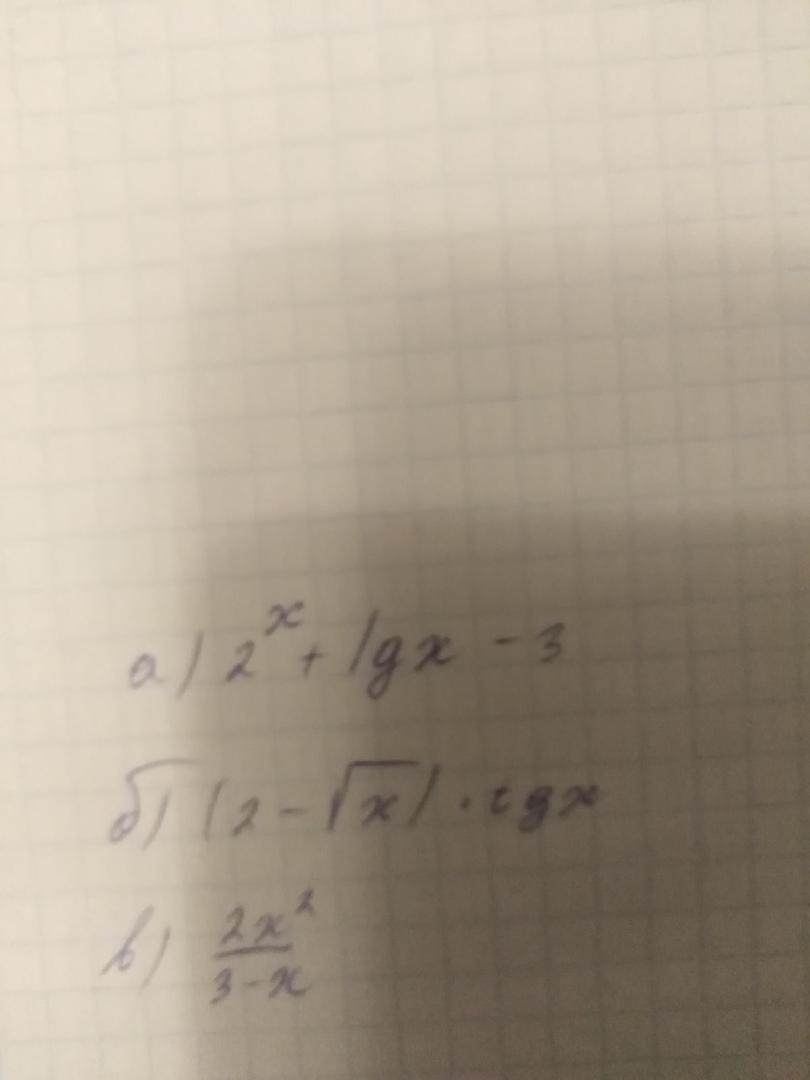 а) 2ˣ + lgx - 3
б) (2 - √x) · tgx
в) 2x² / 3 - x